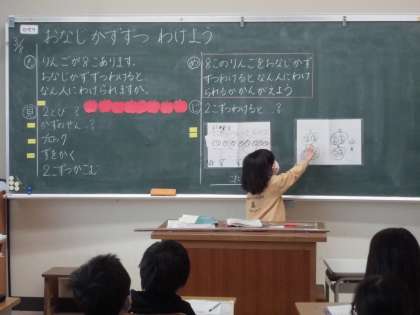 おなじかずずつ わけよう
りんごが8こあります。
おなじかずずつわけると
なん人にわけられますか。
8このりんごをおなじかず
ずつわけるとなん人にわけ
られるかかんがえよう
2とび
かずのせん
ブロック
ずをかく
2こずつかこむ
2こずつわけると